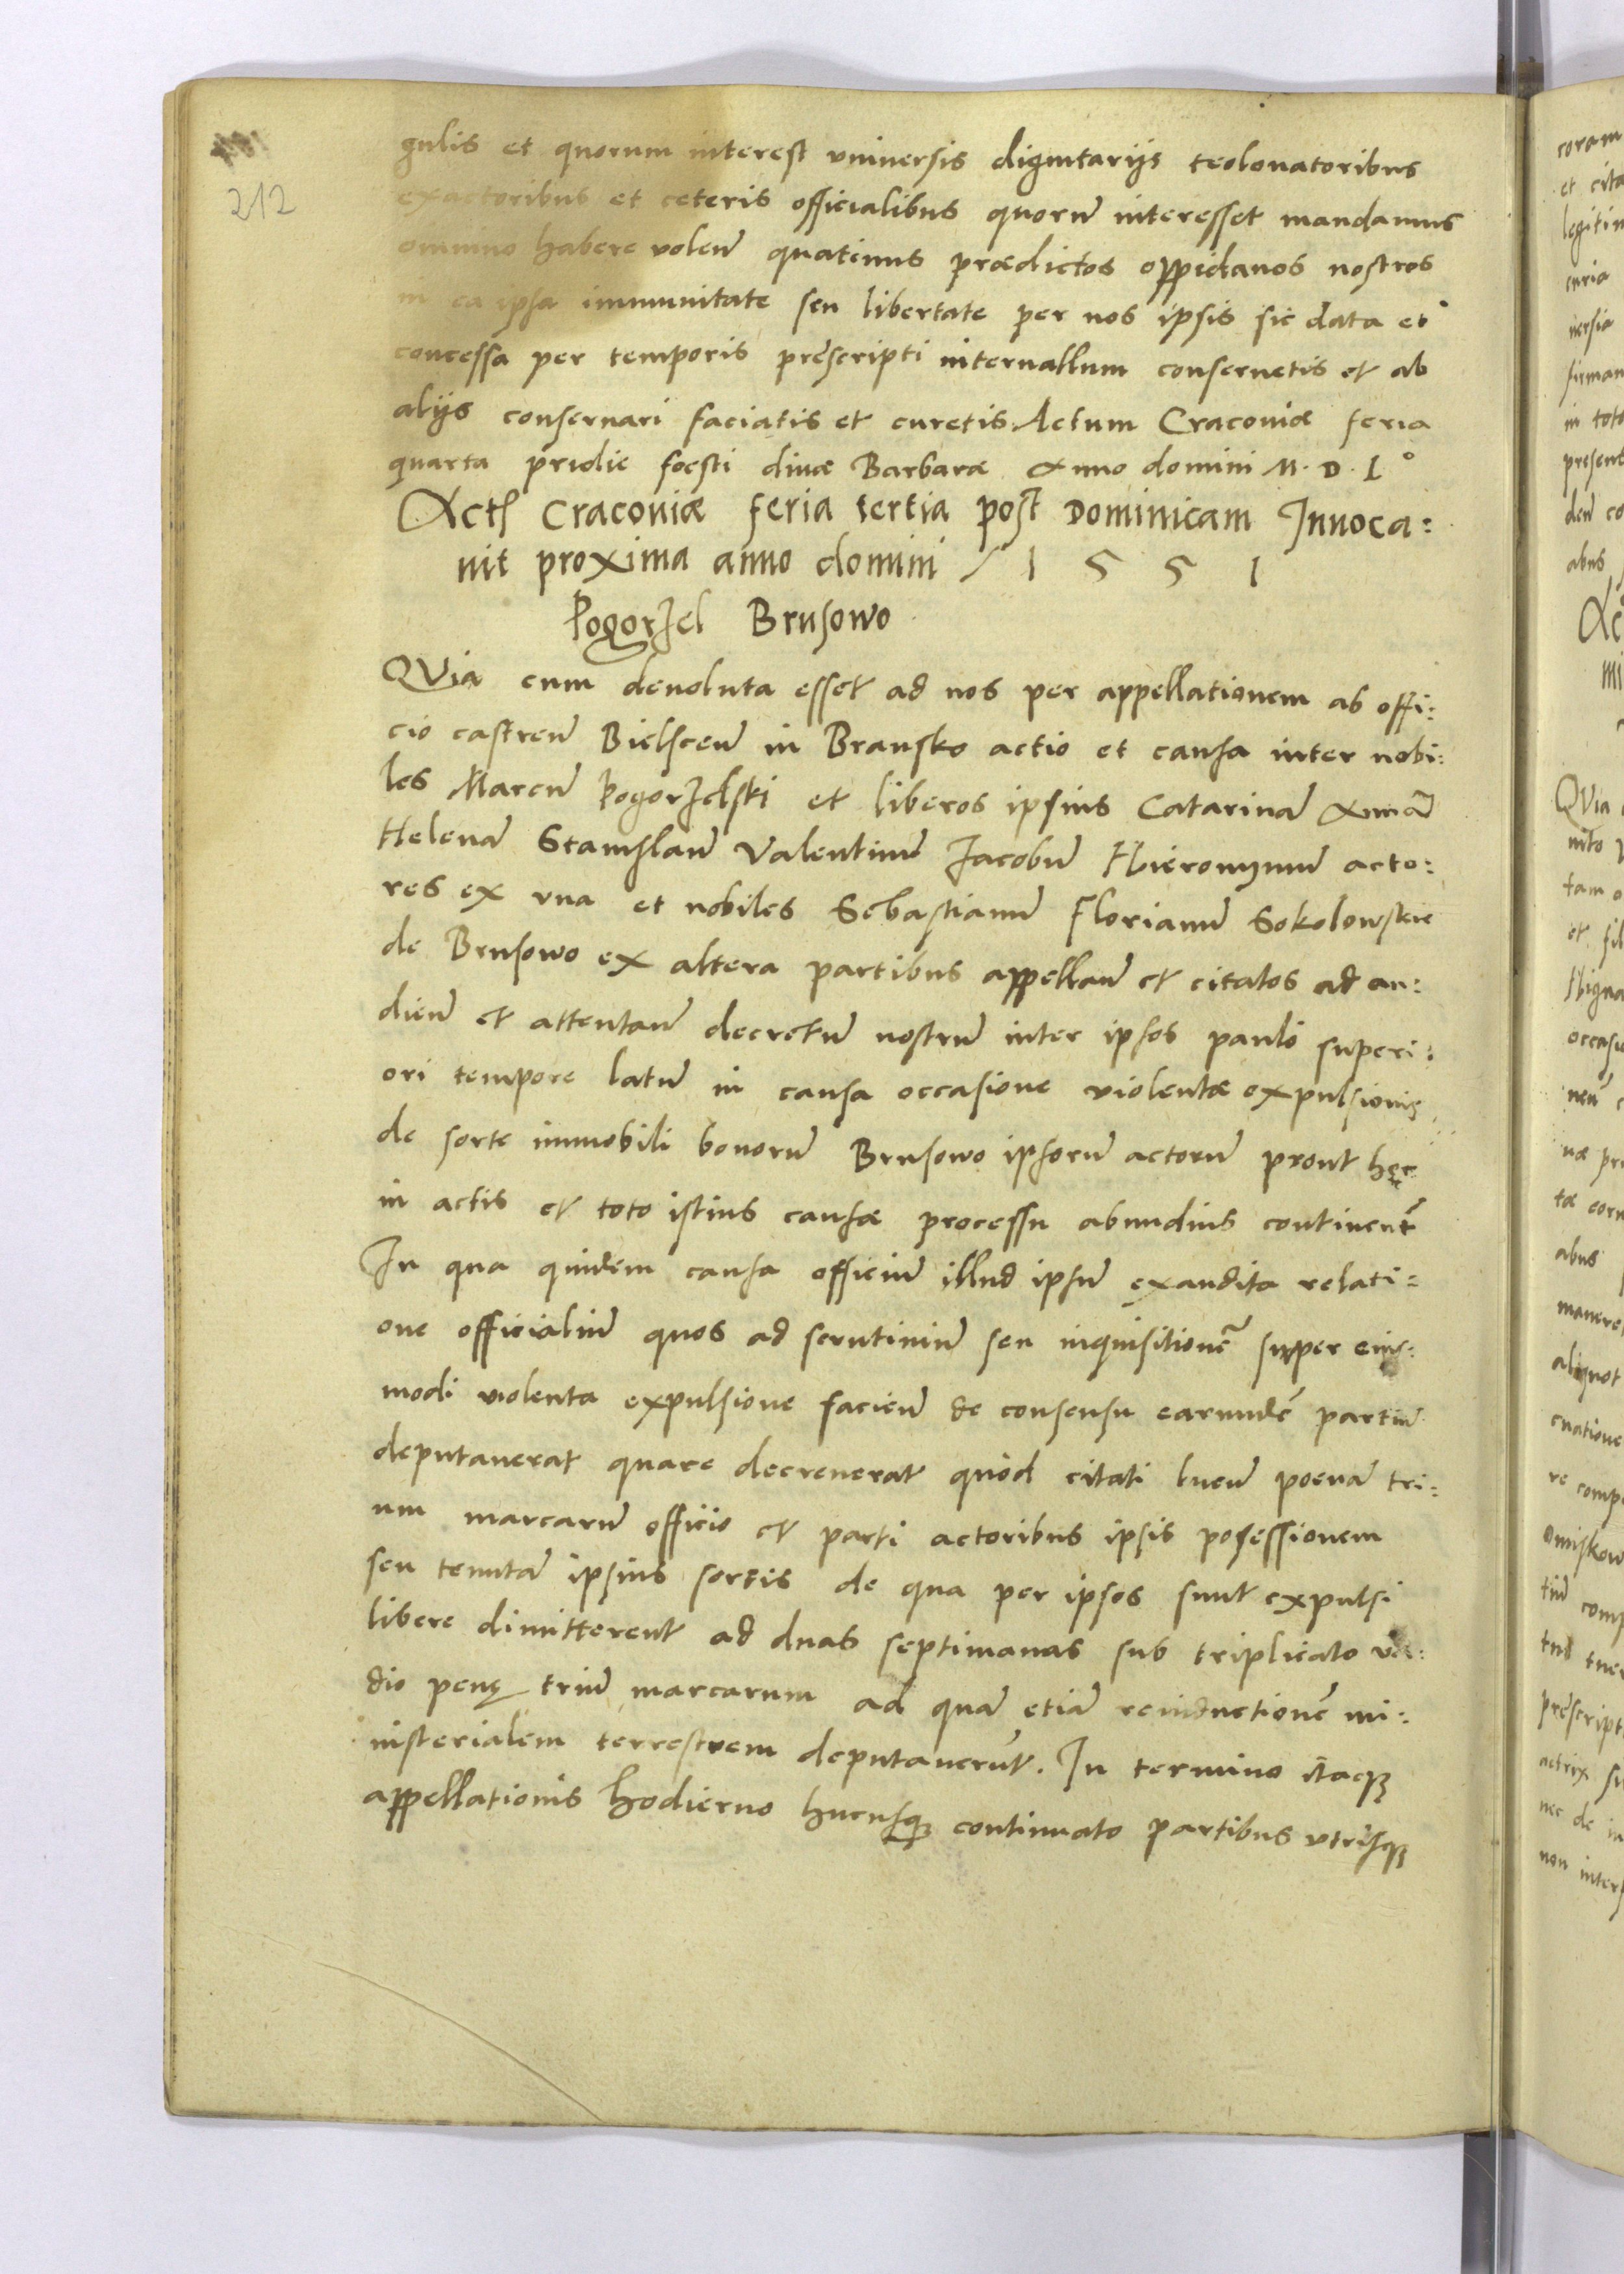 212
gulis et quorum interest vniuersis dignitarijs teolonatoribus
exactoribus et ceteris officialibus quorū interesset mandamus
omnino habere volen̄ quatinus prædictos oppidanos nostros
in ea ipsa immunitate seu libertate per nos ipsis sic data et
concessa per temporis præscripti interuallum conseruetis et ab
alijs conseruari faciatis et curetis. Actum Cracouiæ feria
quarta pridie foesti diuæ Barbaræ Anno domini M. D. L°
Acta Cracouiæ feria tertia post Dominicam Inuoca:
uit proxima anno domini / 1 5 5 1
Pogorzel Brusowo
QVia cum deuoluta esset ad nos per appellationem ab offi:
cio castren̄ Bielscen̄ in Bransko actio et causa inter nobi:
les Marcū Pogorzelski et liberos ipsius Catarinā Annā
Helenā Stanislaū Valentinū Jacobū Hieronymū acto:
res ex vna et nobiles Sebastianū Florianū Sokolowskie
de Brusowo ex altera partibus appellan̄ et citatos ad au:
dien̄ et attentan̄ decretū nostrū inter ipsos paulo superi:
ori tempore latū in causa occasione violentæ expulsionis
de sorte immobili bonorū Brusowo ipsorū actorū prout hęc
in actis et toto istius causæ processu abundius continent̄
In qua quidem causa officiū illud ipsū exaudita relati:
one officialiū quos ad scrutiniū seu inquisitionē super eius:
modi violenta expulsione facien̄ de consensu earundē partiū
deputauerat quare decreuerat quod citati luen̄ poenā tri:
um marcarū officio et parti actoribus ipsis posessionem
seu tenutā ipsius sortis de qua per ipsos sunt expulsi
libere dimitterent ad duas septimanas sub triplicato va:
dio penę triū marcarum ad quā etiā reinductionē mi:
nisterialem terrestrem deputauerūt. In termino itaqꝫ
appellationis hodierno hucusqꝫ continuato partibus vtrisqꝫ